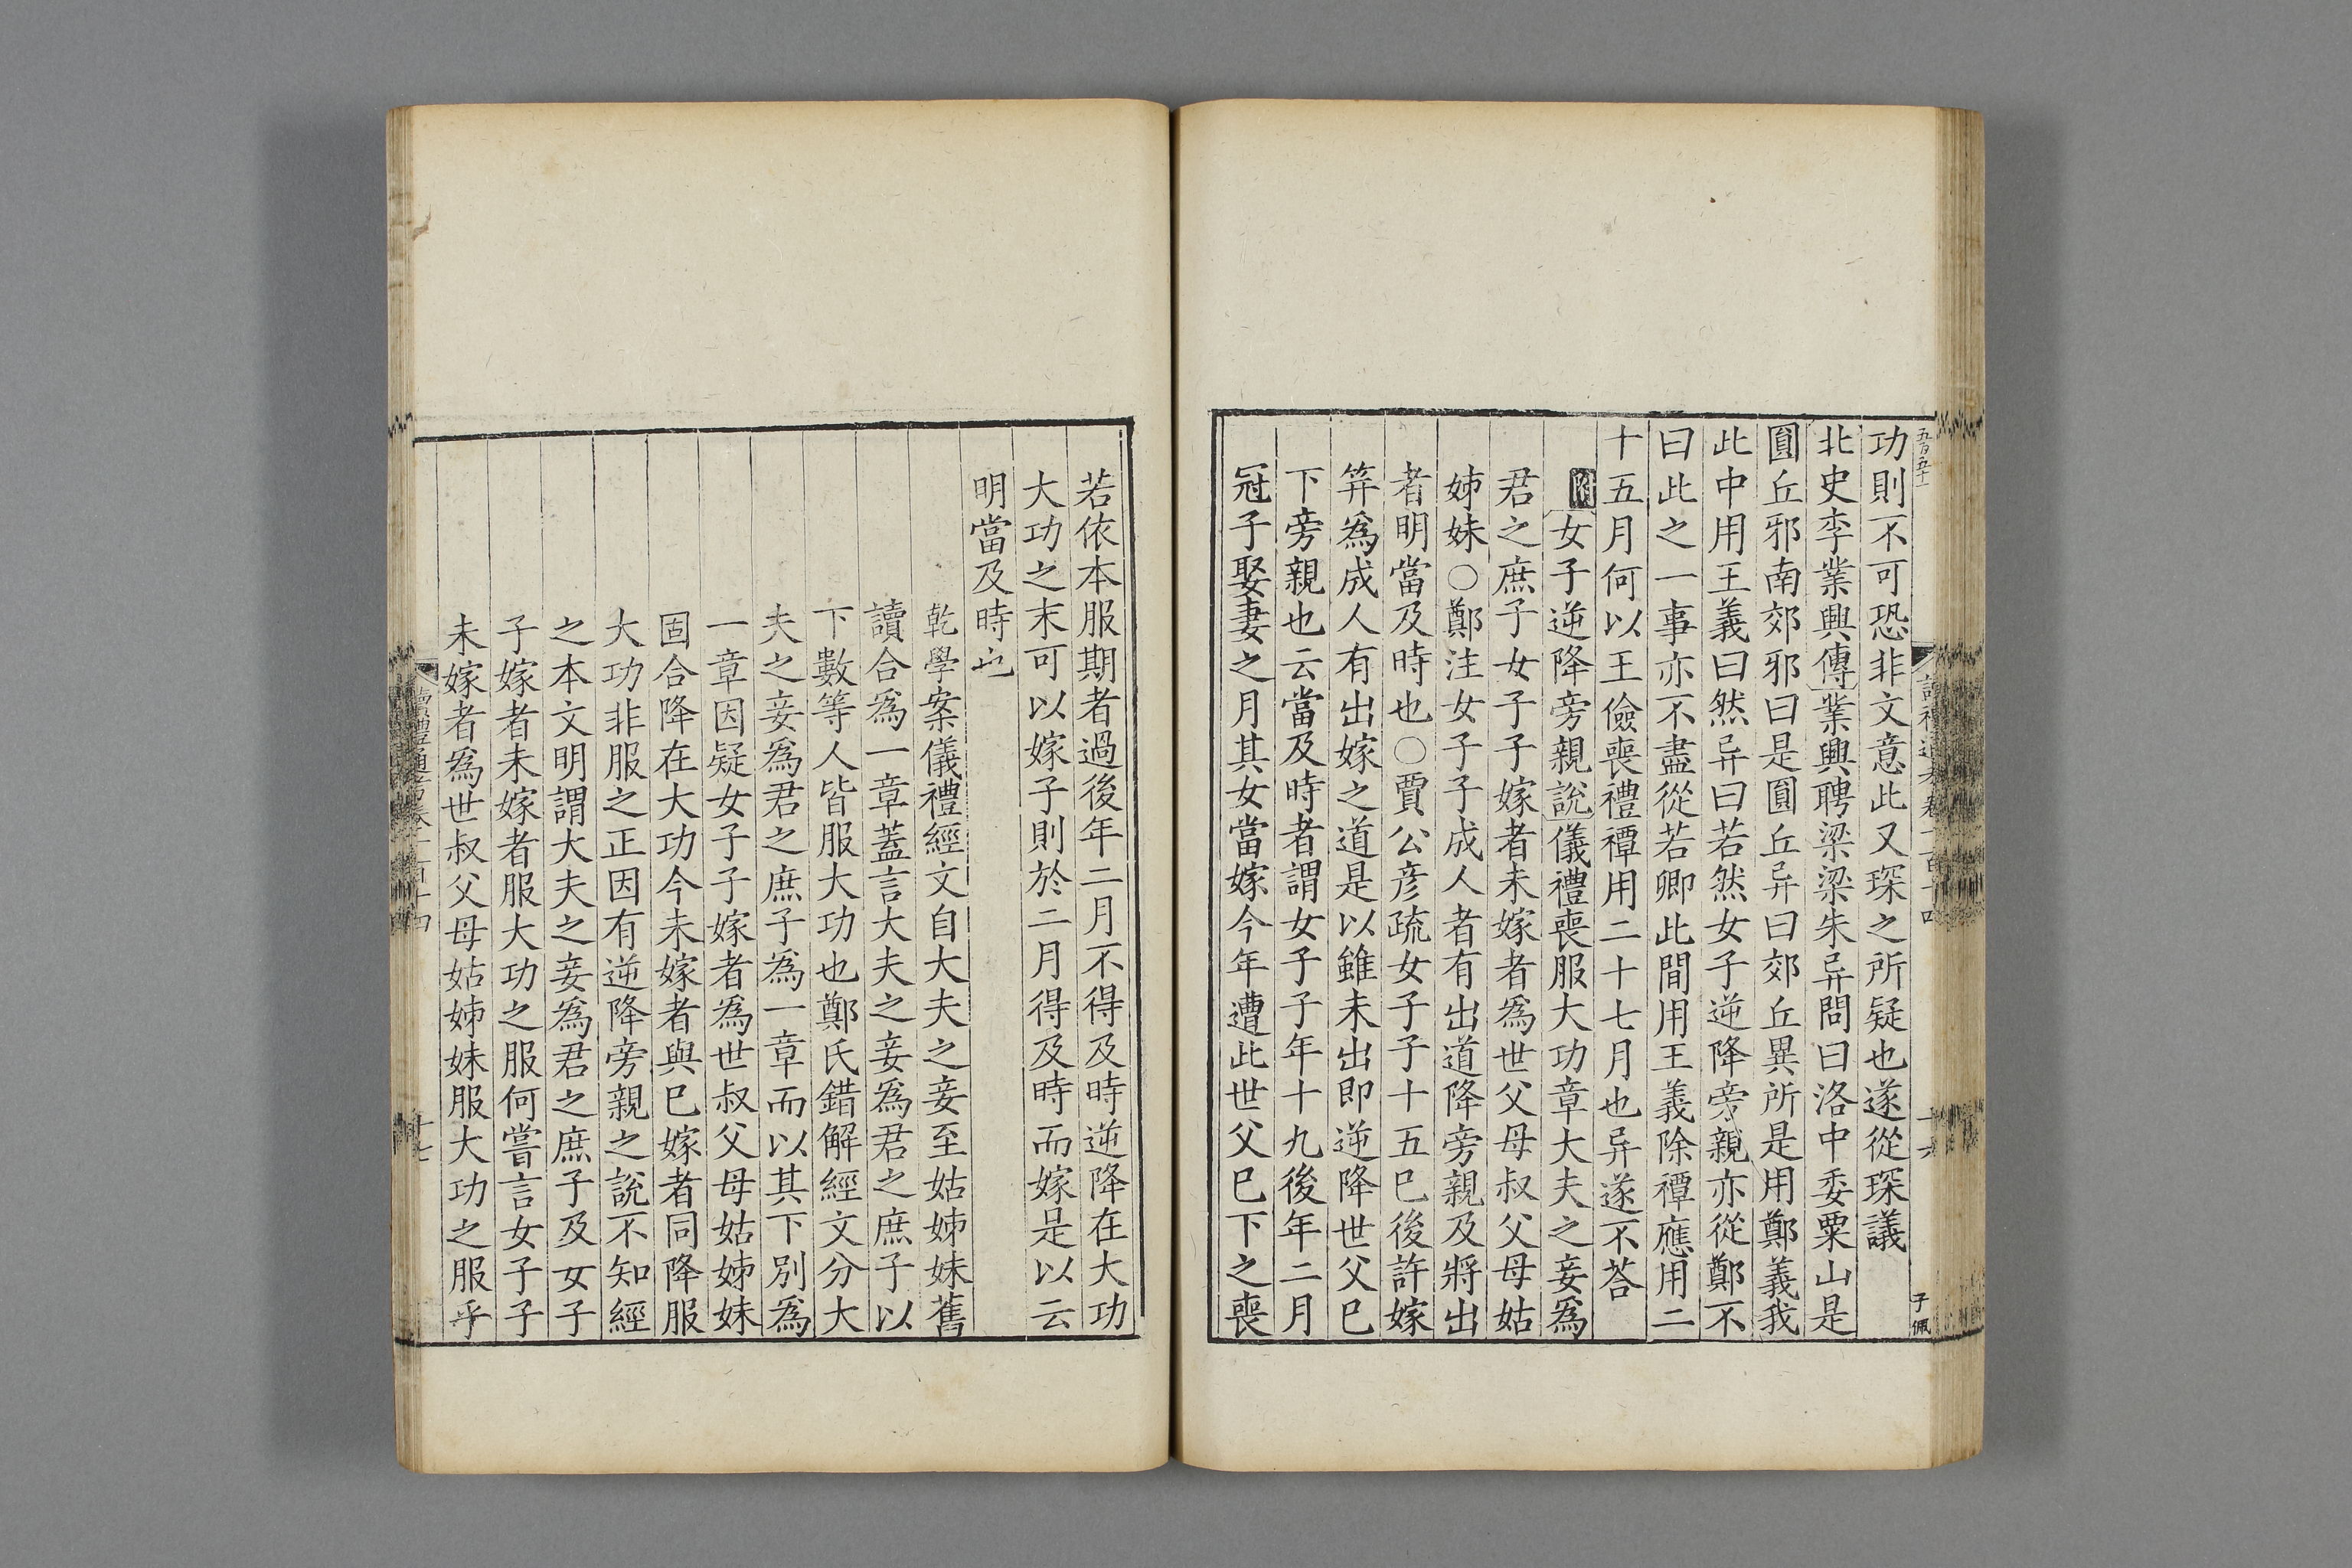 五百五十一
功則不可恐非文意此又琛之所疑也遂從琛議
北史李業興傳業興聘梁梁朱异問曰洛中委粟山是
圓丘邪南郊邪曰是圓丘异曰郊丘異所是用鄭義我
此中用王義曰然异曰若然女子逆降旁親亦從鄭不
曰此之一事亦不盡從若卿此間用王義除禫應用二
十五月何以王儉喪禮禫用二十七月也异遂不荅
附女子逆降旁親說儀禮喪服大功章大夫之妾爲
君之庶子女子子嫁者未嫁者爲世父母叔父母姑
姊妹○鄭注女子子成人者有出道降旁親及將出
者明當及時也○賈公彦疏女子子十五巳後許嫁
筓爲成人有出嫁之道是以雖未出即逆降世父巳
下旁親也云當及時者謂女子子年十九後年二月
冠子娶妻之月其女當嫁今年遭此世父巳下之喪
子佩
若依本服期者過後年二月不得及時逆降在大功
大功之末可以嫁子則於二月得及時而嫁是以云
明當及時也
乾學案儀禮經文自大夫之妾至姑姊妹舊
讀合爲一章蓋言大夫之妾爲君之庶子以
下數等人皆服大功也鄭氏錯解經文分大
夫之妾爲君之庶子爲一章而以其下別爲
一章因疑女子子嫁者爲世叔父母姑姊妹
固合降在大功今未嫁者與巳嫁者同降服
大功非服之正因有逆降旁親之說不知經
之本文明謂大夫之妾爲君之庶子及女子
子嫁者未嫁者服大功之服何嘗言女子子
未嫁者爲世叔父母姑姊妹服大功之服乎
十七